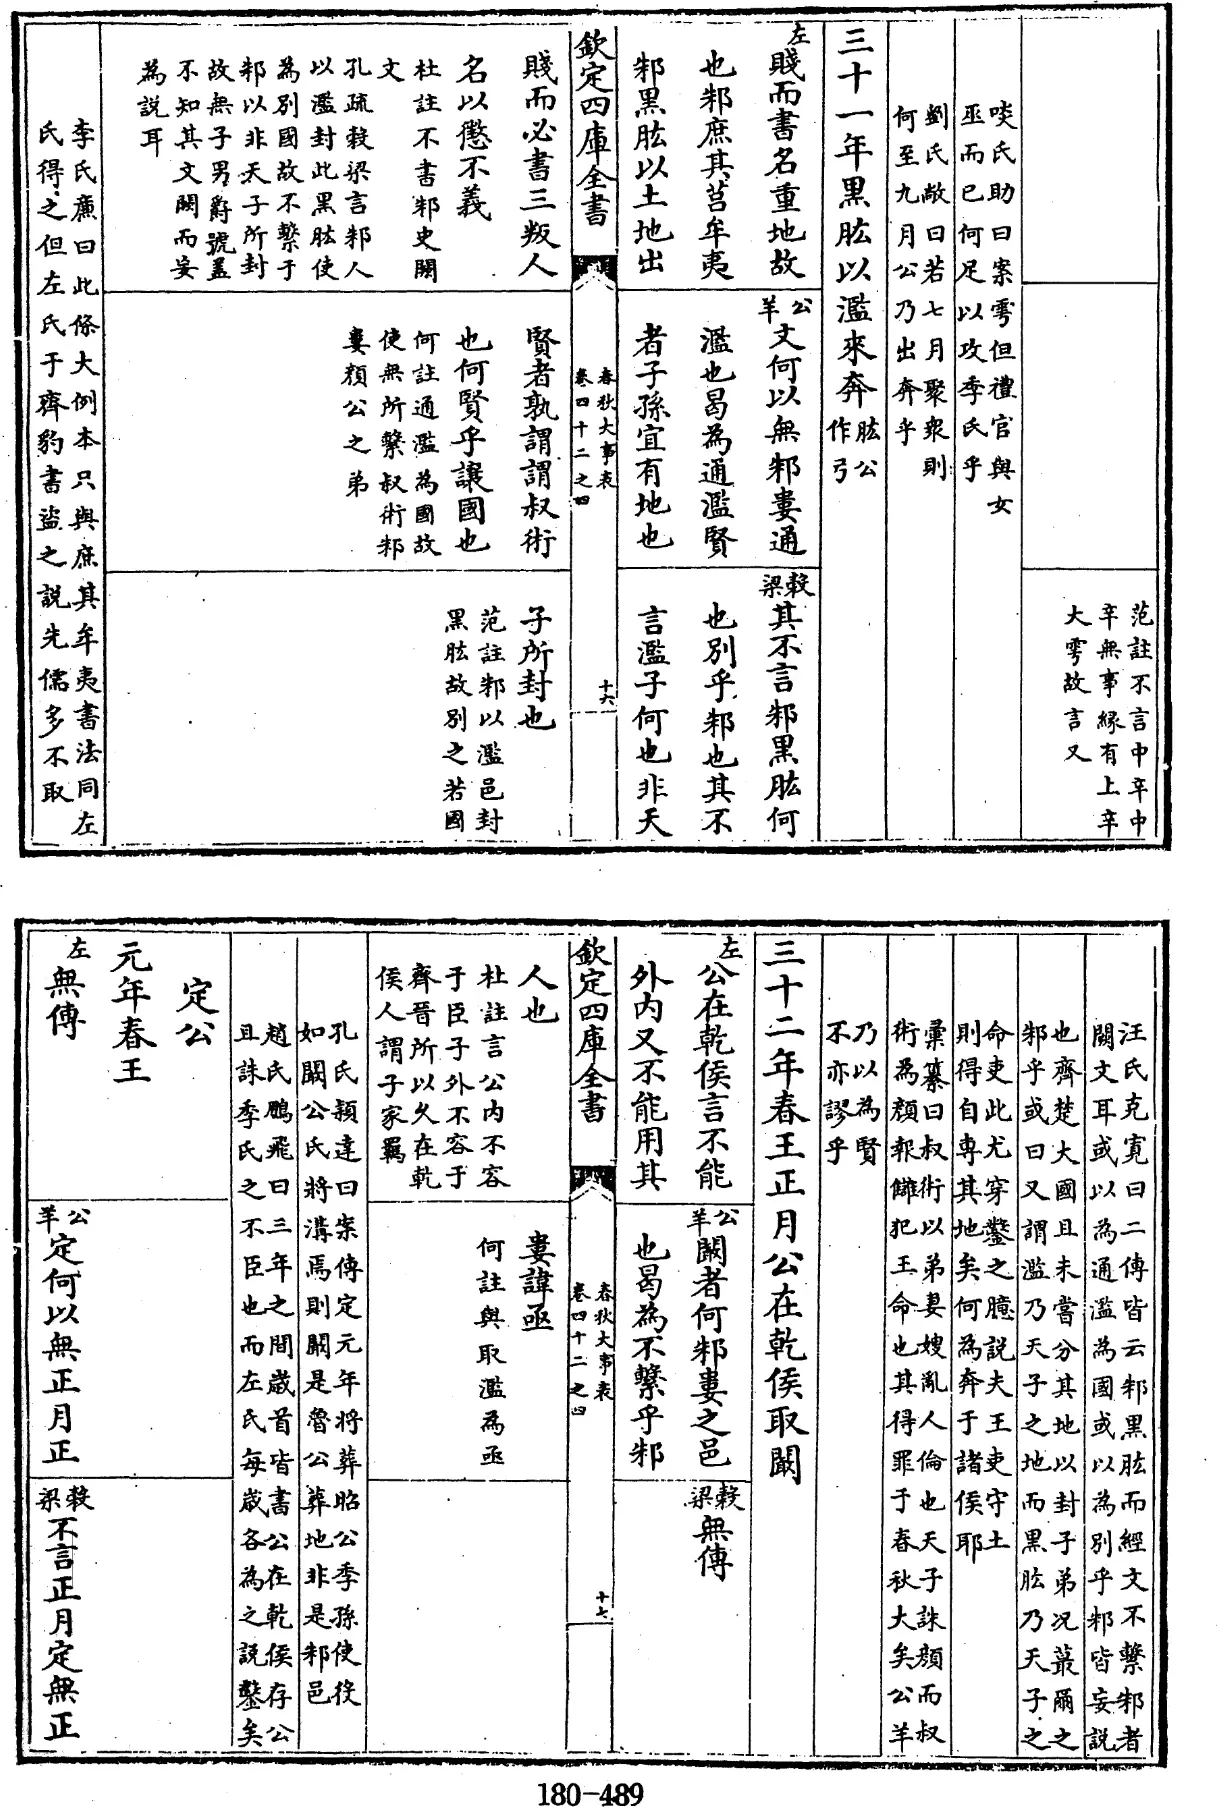 范註不言中辛中
辛無事緣有上辛
大雩故言又
啖氏助曰案雩但禮官與女
巫而已何足以攻季氏乎
劉氏敞曰若七月聚衆則
何至九月公乃出奔乎
三十一年黑肱以濫來奔肱公
作弓
左
賤而書名重地故
也邾庶其莒牟夷
邾黑肱以土地出
公
羊
文何以無邾婁通
濫也曷為通濫賢
者子孫宜有地也
穀
梁
其不言邾黑肱何
也別乎邾也其不
言濫子何也非天
欽定四庫全書
春秋大事表
卷四十二之四
十六
賤而必書三叛人
名以懲不義
杜註不書邾史闕
文
孔疏穀梁言邾人
以濫封此黑肱使
為別國故不繫于
邾以非天子所封
故無子男爵號蓋
不知其文闕而妄
為說耳
賢者孰謂謂叔術
也何賢乎讓國也
何註通濫為國故
使無所繫叔術邾
婁顏公之弟
子所封也
范註邾以濫邑封
黑肱故別之若國
李氏廉曰此條大例本只與庶其牟夷書法同左
氏得之但左氏于齊豹書盜之說先儒多不取
汪氏克寬曰二傳皆云邾黑肱而經文不繫邾者
闕文耳或以為通濫為國或以為別乎邾皆妄說
也齊楚大國且未嘗分其地以封子弟況蕞爾之
邾乎或曰又謂濫乃天子之地而黑肱乃天子之
命吏此尤穿鑿之臆說夫王吏守土
則得自專其地矣何為奔于諸侯耶
彙纂曰叔術以弟妻嫂亂人倫也天子誅顏而叔
術為顏報讎犯王命也其得罪于春秋大矣公羊
乃以為賢
不亦謬乎
三十二年春王正月公在乾侯取闞
左
公在乾侯言不能
外內又不能用其
公
羊
闞者何邾婁之邑
也曷為不繫乎邾
穀
梁
無傳
欽定四庫全書
春秋大事表
卷四十二之四
十七
人也
杜註言公內不容
于臣子外不容于
齊晉所以久在乾
侯人謂子家羈
婁諱亟
何註與取濫為亟
孔氏穎達曰案傳定元年將葬昭公季孫使役
如闞公氏將溝焉則闞是魯公葬地非是邾邑
趙氏鵬飛曰三年之間歲首皆書公在乾侯存公
且誅季氏之不臣也而左氏每歲各為之說鑿矣
定公
元年春王
左
無傳
公
羊
定何以無正月正
穀
梁
不言正月定無正
180-489